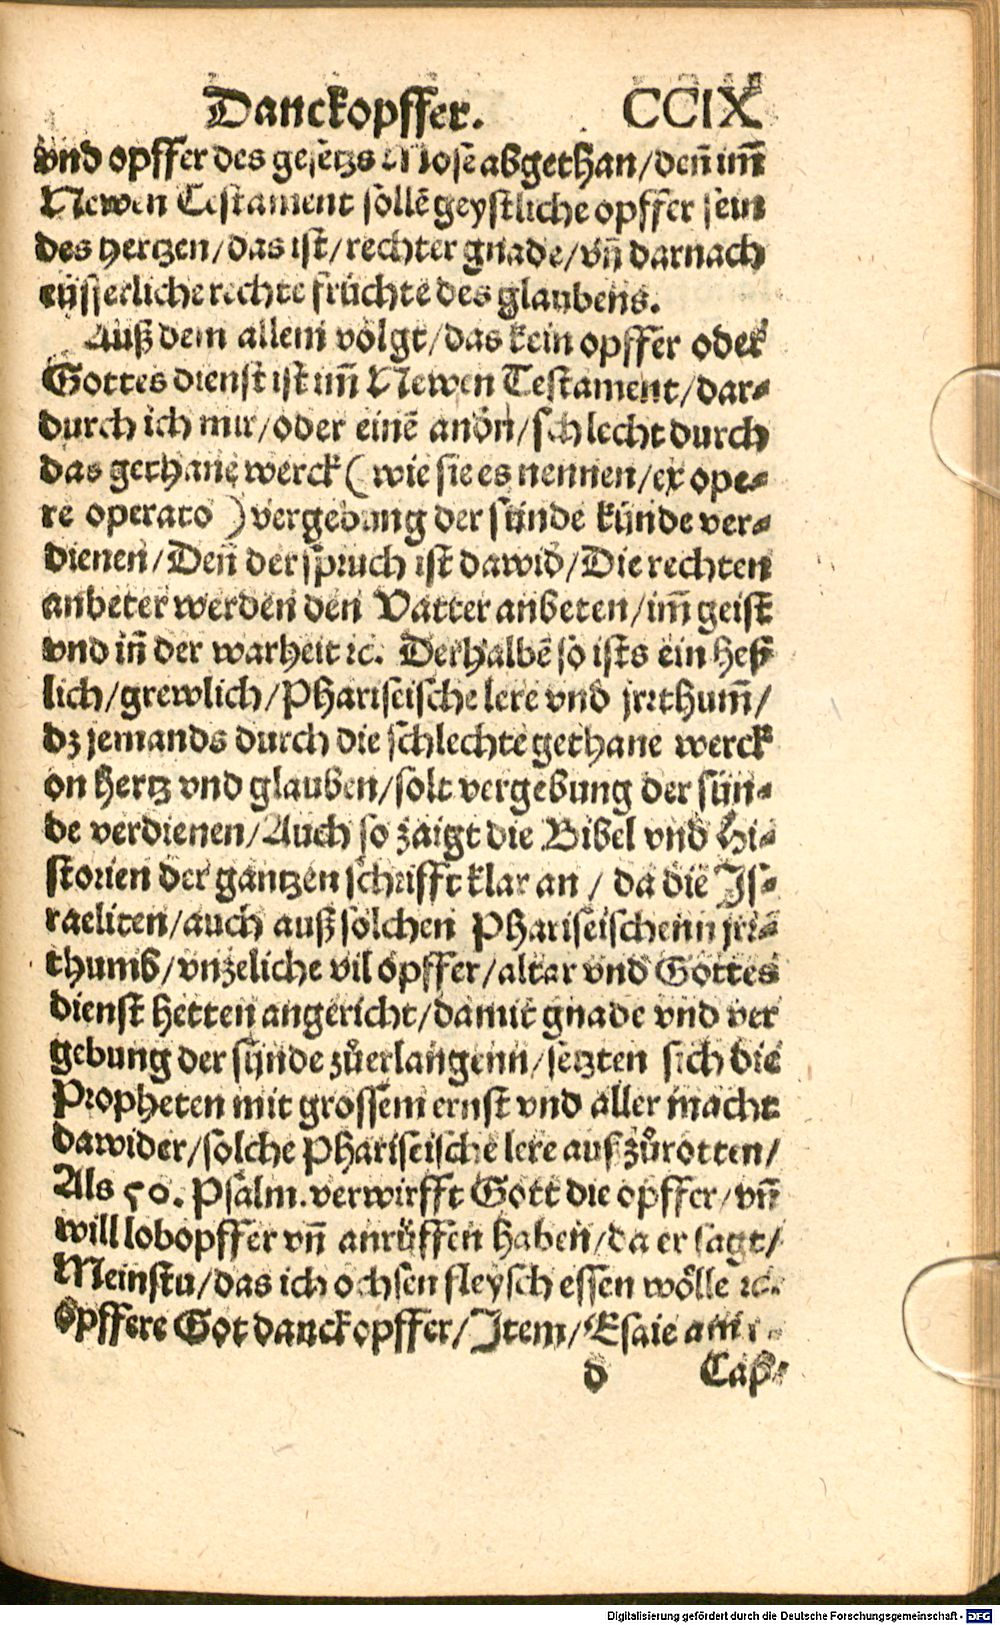 Danckopffer. CCIX
vnd opffer des gesetzs Mose abgethan/deñ im̃
Newen Testament sollẽ geystliche opffer sein
des hertzen/das ist/rechter gnade/vñ darnach
eüsserliche rechte früchte des glaubens.
Auß dem allem volgt/das kein opffer oder
Gottes dienst ist im̃ Newen Testament/dar-
durch ich mir/oder einẽ andñ/schlecht durch
das gethane werck (wie sie es nennen/ex ope-
re operato) vergebung der sünde künde ver-
dienen/Deñ der spruch ist dawid/Die rechten
anbeter werden den Vatter anbeten/im̃ geist
vnd iñ der warheit ꝛc. Derhalbẽ so ists ein heß
lich/grewlich/Phariseische lere vnd jrrthum̃/
dz jemands durch die schlechte gethane werck
on hertz vnd glauben/solt vergebung der sün-
de verdienen/Auch so zaigt die Bibel vnd Hi-
storien der gantzen schrifft klar an/da die Is-
raeliten/auch auß solchen Phariseischenn jrr-
thumb/vnzeliche vil opffer/altar vnd Gottes
dienst hetten angericht/damit gnade vnd ver
gebung der sünde zů erlangenn/setzten sich die
Propheten mit grossem ernst vnd aller macht
dawider/solche Phariseische lere auß zů rotten/
Als 50. Psalm. verwirfft Gott die opffer/vñ
will lobopffer vñ anrüffen haben/da er sagt/
Meinstu/das ich ochsen fleysch essen wölle ꝛc.
opffere Got danckopffer/Item/Esaie am 1-
d Cap-
Digitalisierung gefördert durch die Deutsche Forschungsgemeinschaft - DFG